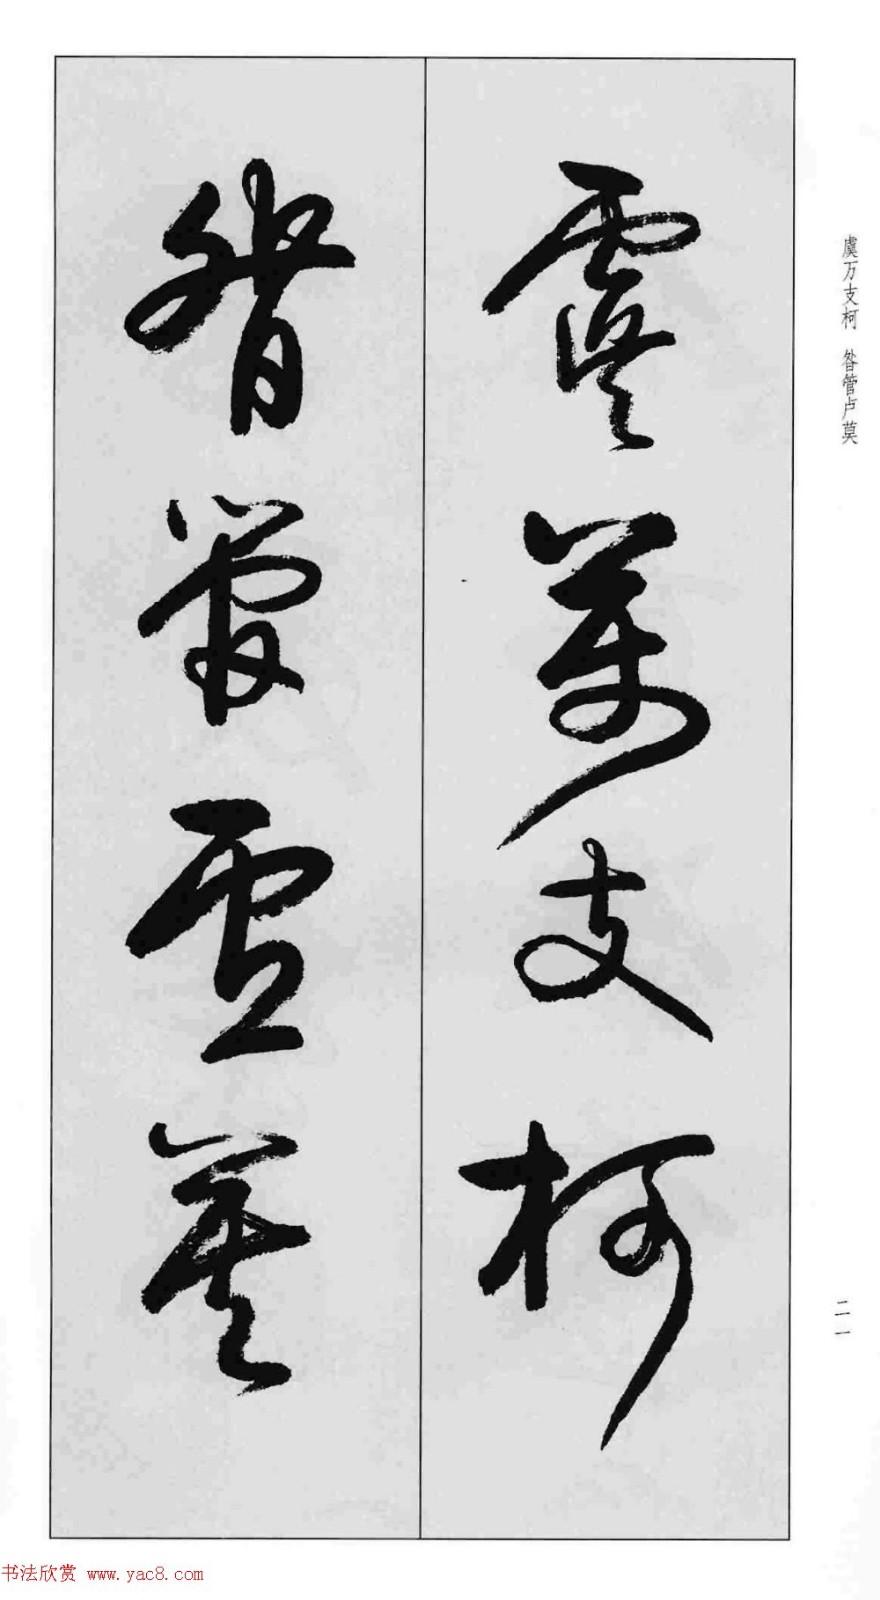 虞万支柯 昝管卢莫
虞萬支柯
昝管盧莫
二一
书法欣赏 www.yac8.com